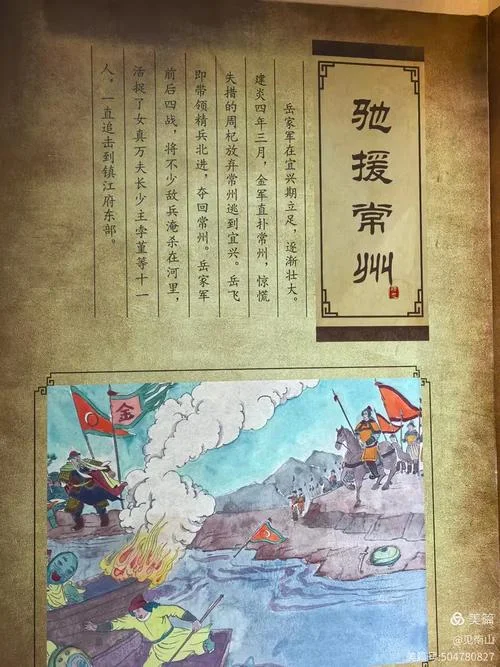 驰援常州
岳家军在宜兴期立足，逐渐壮大。
建炎四年三月，金军直扑常州，惊慌
失措的周杞放弃常州逃到宜兴。岳飞
即带领精兵北进，夺回常州。岳家军
前后四战，将不少敌兵淹杀在河里，
活捉了女真万夫长少主孛堇等十一
人，一直追击到镇江府东部。
金
美篇
@见南山
美篇号:504780827